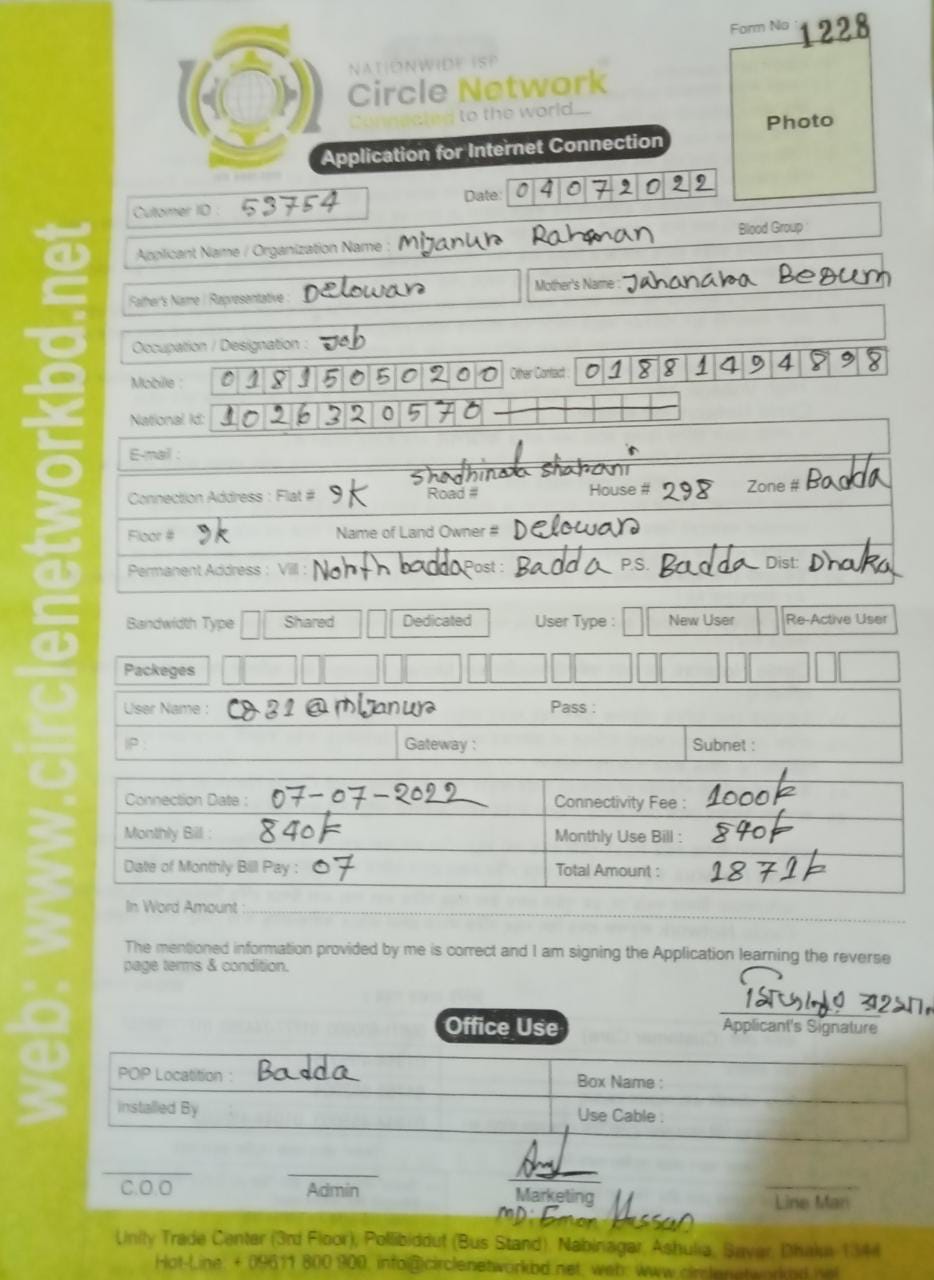 Form No : 1228
NATIONWIDE ISP
Circle Network
Connected to the world....
Photo
Application for Internet Connection
Cutomer ID : 53754 Date: 04072022
Applicant Name / Organization Name : Mijanur Rahman Blood Group :
Father's Name / Representative : Delowar Mother's Name : Jahanara Begum
Occupation / Designation : Job
Mobile : 01815050200 Other Contact : 01881494898
National Id: 1026320570
E-mail :
Connection Address : Flat # 9K Road # Shadhinata Sharani House # 298 Zone # Badda
Floor # 9k Name of Land Owner # Delowar
Permanent Address : Vill : North badda Post : Badda P.S. Badda Dist: Dhaka
Bandwidth Type Shared Dedicated User Type : New User Re-Active User
Packeges
User Name : @mijanur Pass :
IP : Gateway : Subnet :
Connection Date : 07-07-2022 Connectivity Fee : 1000
Monthly Bill : 840 Monthly Use Bill : 840
Date of Monthly Bill Pay : 07 Total Amount : 1871
In Word Amount :
The mentioned information provided by me is correct and I am signing the Application learning the reverse
page terms & condition.
Applicant's Signature
Office Use
POP Locatition : Badda Box Name :
Installed By Use Cable :
C.O.O Admin Marketing Line Man
MD: Emon Hassan
Unity Trade Center (3rd Floor), Pollibiddut (Bus Stand), Nabinagar, Ashulia, Savar, Dhaka-1344
Hot-Line: + 09611 800 900, info@circlenetworkbd.net, web: www.circlenetworkbd.net
web: www.circlenetworkbd.net